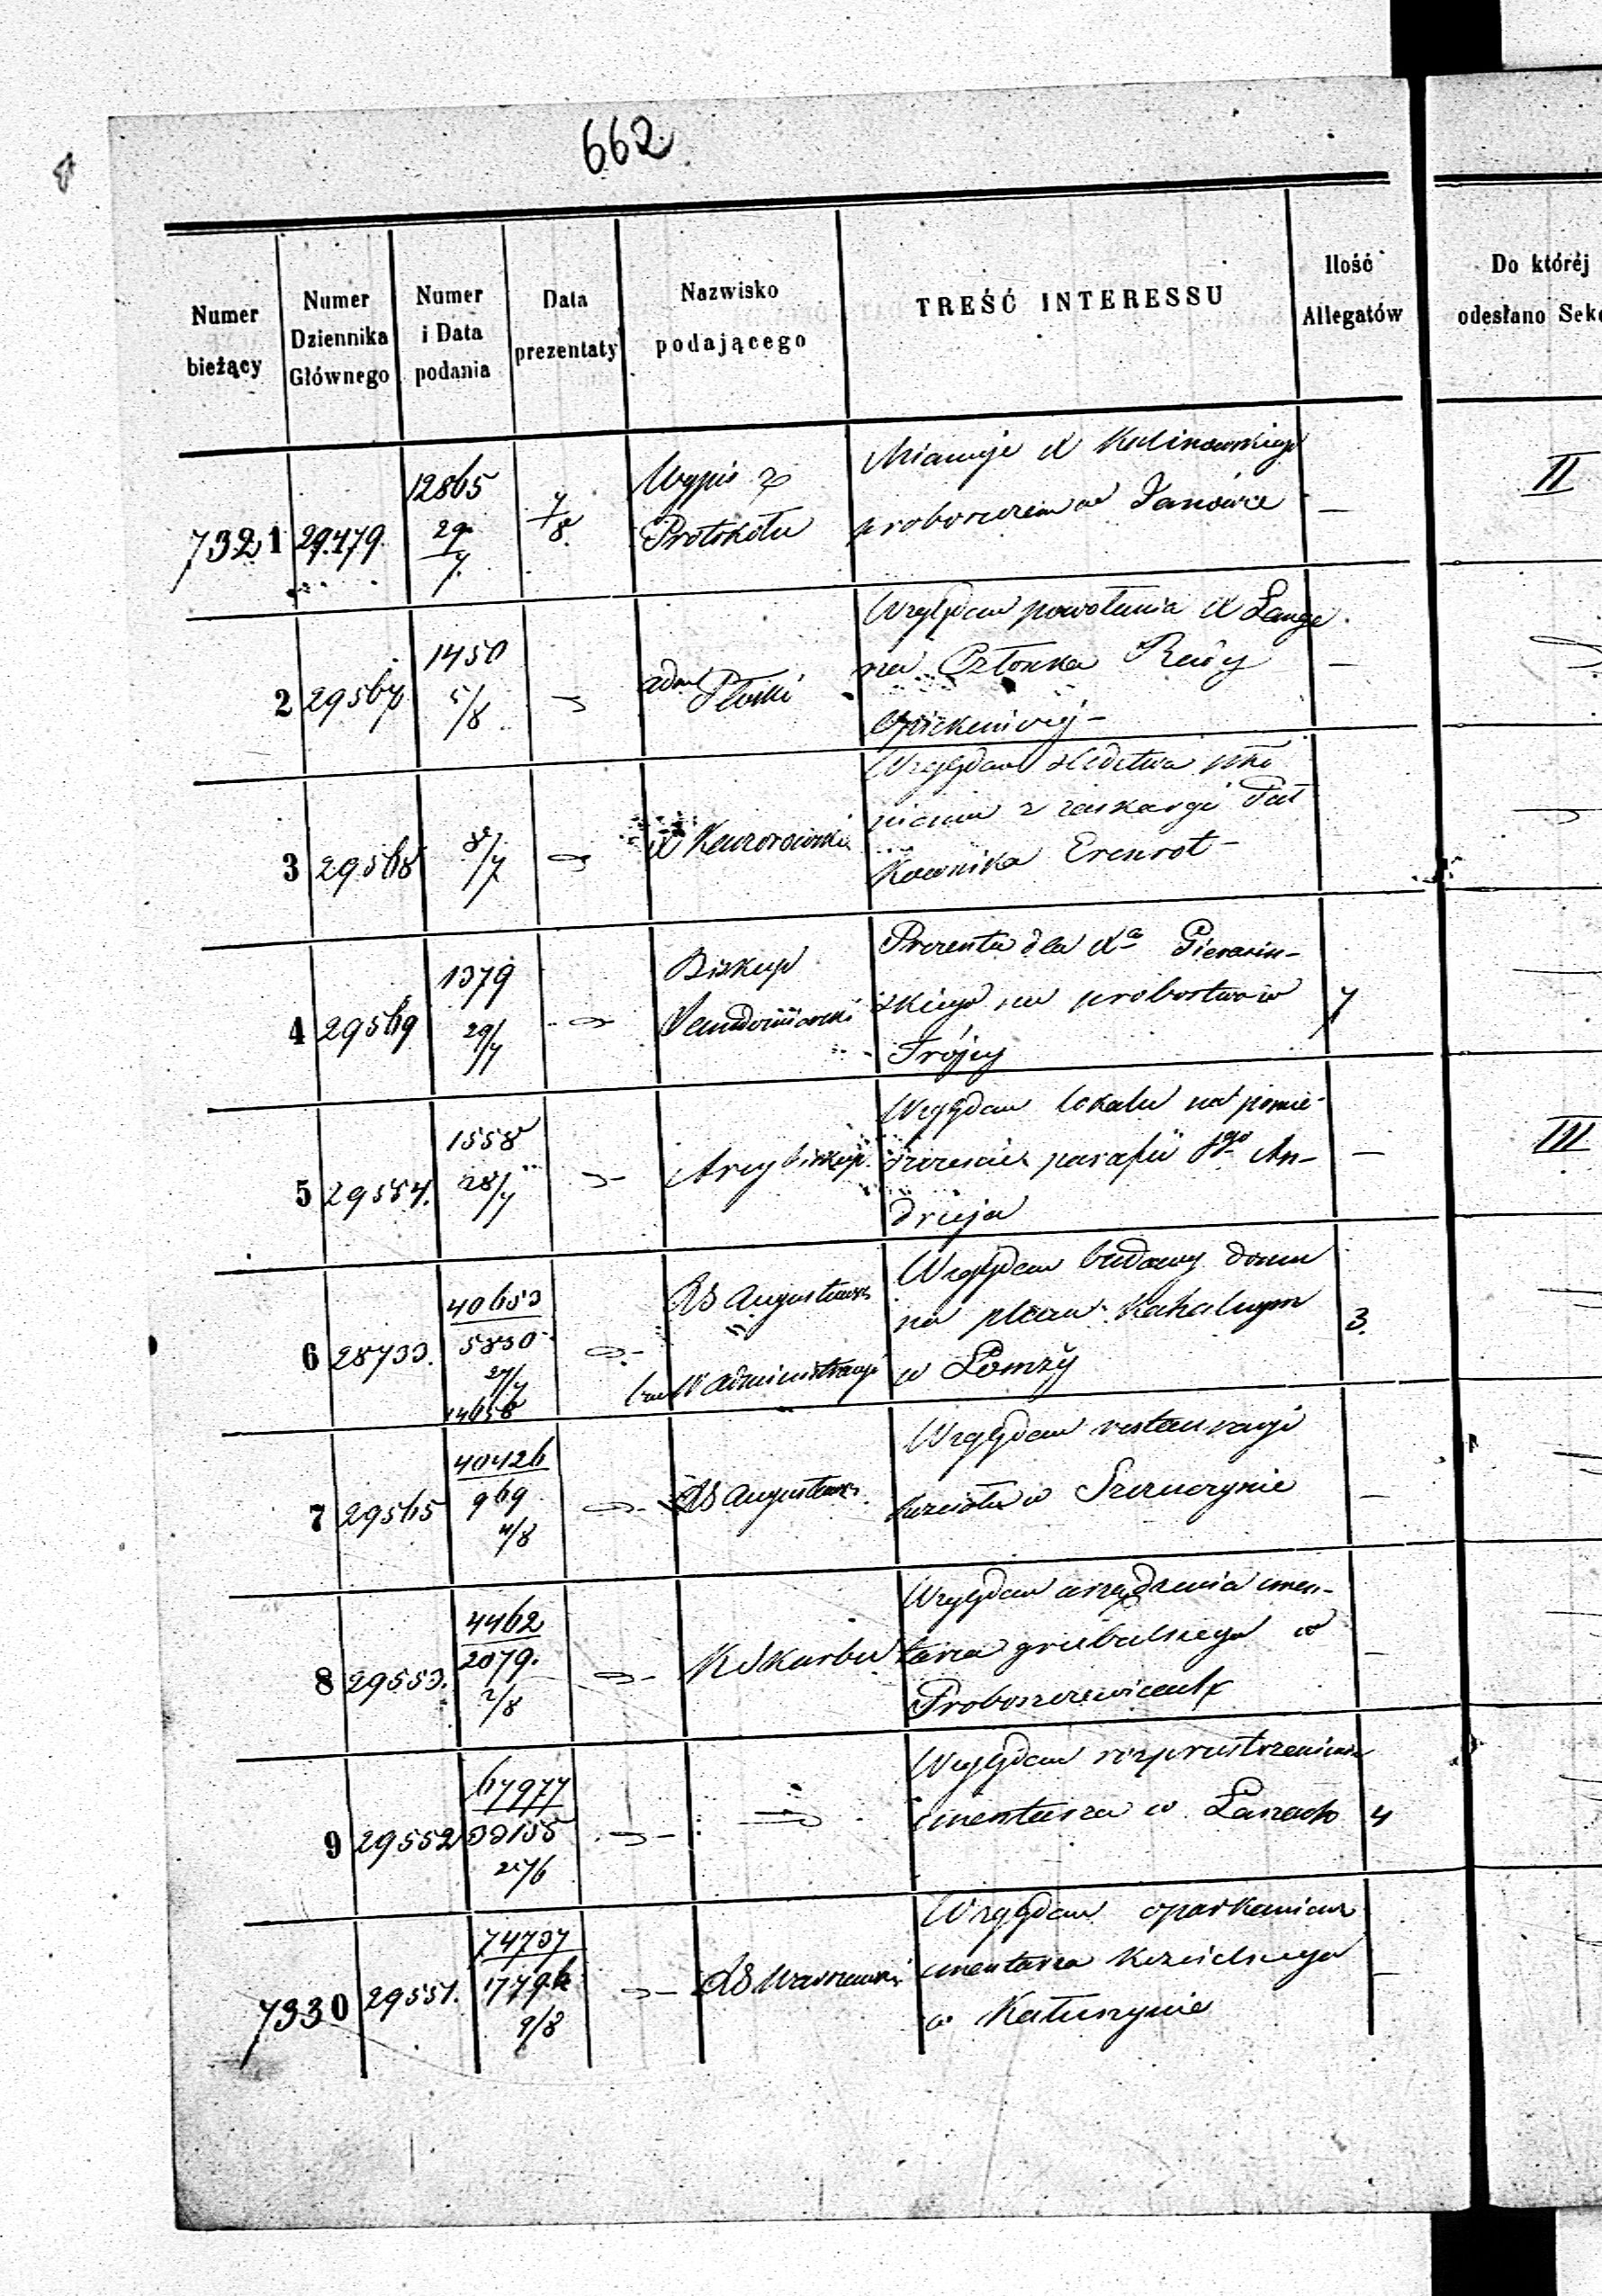 662
Numer bieżący
Numer Dziennika Głównego
Numer i Data podania
Data prezentaty
Nazwisko podającego
TREŚĆ INTERESSU
Ilość Allegatów
Do któréj
odesłano Sek
7321 29.479. 12865 29/7. 7/8. Wypis z Protokołu
Mianuje X Kalinowskiego
proboszczem w Janówce
—
II
2 29567 1450 5/8. adm Płocki
Względem powołania X Lange
na Członka Rady
Opiekuńczej —
—
3 29568 8/7 X Kaczorowski
Względem śledztwa
z zaskargi Puł
kownika Erenrot —
4 29569 1379 29/7 Biskup Sandomierski
Prezenta dla Xa Gierasiń-
skiego na probostwo w
Trójcy
7
5 29554. 1558 28/7 Arcybiskup.
Względem lokalu na pomie-
szczenie parafii Sgo An-
drzeja
—
III
6 28733. 40653 5830 27/7 14658 RG Augustows Administracyi
Względem budowy domu
na placu Kahalnym
w Łomży
3.
7 29565 40426 969 4/8 RG Augustows.
Względem restauracyi
kościoła w Szczuczynie
—
8 29553. 4462 2079. 2/8 K Skarbu
Względem urządzenia cmen-
tarza grzebalnego w
Proboszczewicach
—
9 29552 67977 33155 27/6
Względem rozprzestrzenienia
cmentarza w Łazach
4
7330 29551. 74737 17796 9/8 RG Warszawski
Względem oparkanienia
cmentarza kościelnego
w Kałuszynie
—